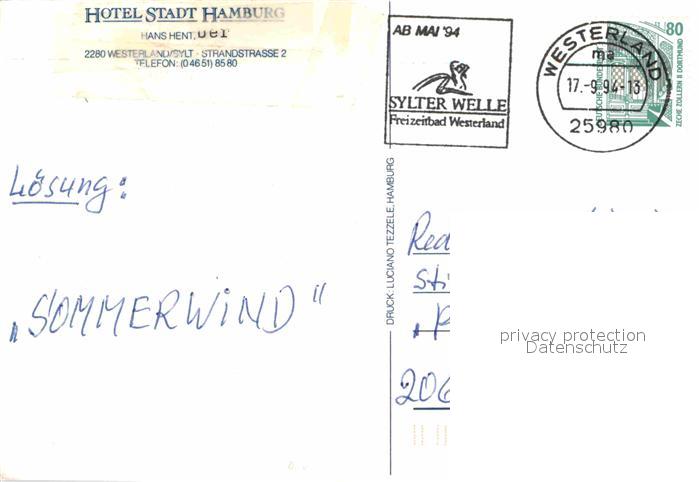 HOTEL STADT HAMBURG
HANS HENT.
2280 WESTERLAND/SYLT · STRANDSTRASSE 2
TELEFON: (04651) 8580
AB MAI '94
SYLTER WELLE
Freizeitbad Westerland
WESTERLAND
ma
17.-9.94-13
25980
80
DEUTSCHE BUNDESPOST
ZECHE ZOLLERN II DORTMUND
Lösung:
„SOMMERWIND"
DRUCK: LUCIANO TEZZELE, HAMBURG
Red
Sti
206
privacy protection
Datenschutz